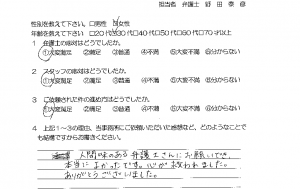 担当者 弁護士 野田 泰彦
性別を教えて下さい。□男性 ☑女性
年齢を教えて下さい。□20代 □30代 □40代 □50代 □60代 □70才以上
1 弁護士の応対はどうでしたか。
①大変満足 ②満足 ③普通 ④不満 ⑤大変不満 ⑥分からない
2 スタッフの応対はどうでしたか。
①大変満足 ②満足 ③普通 ④不満 ⑤大変不満 ⑥分からない
3 ご依頼された件の進め方はどうでしたか。
①大変満足 ②満足 ③普通 ④不満 ⑤大変不満 ⑥分からない
4 上記1~3の理由、当事務所にご依頼いただいた感想など、どのようなことで
も結構ですからお書きください。
人間味のある弁護士さんにお願いでき、
本当によかったです。心が救われました。
ありがとうございました。